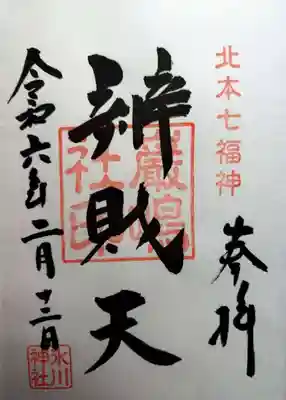 北本七福神
奉拝
辨財天
厳嶋社印
令和六年二月十二日
氷川神社